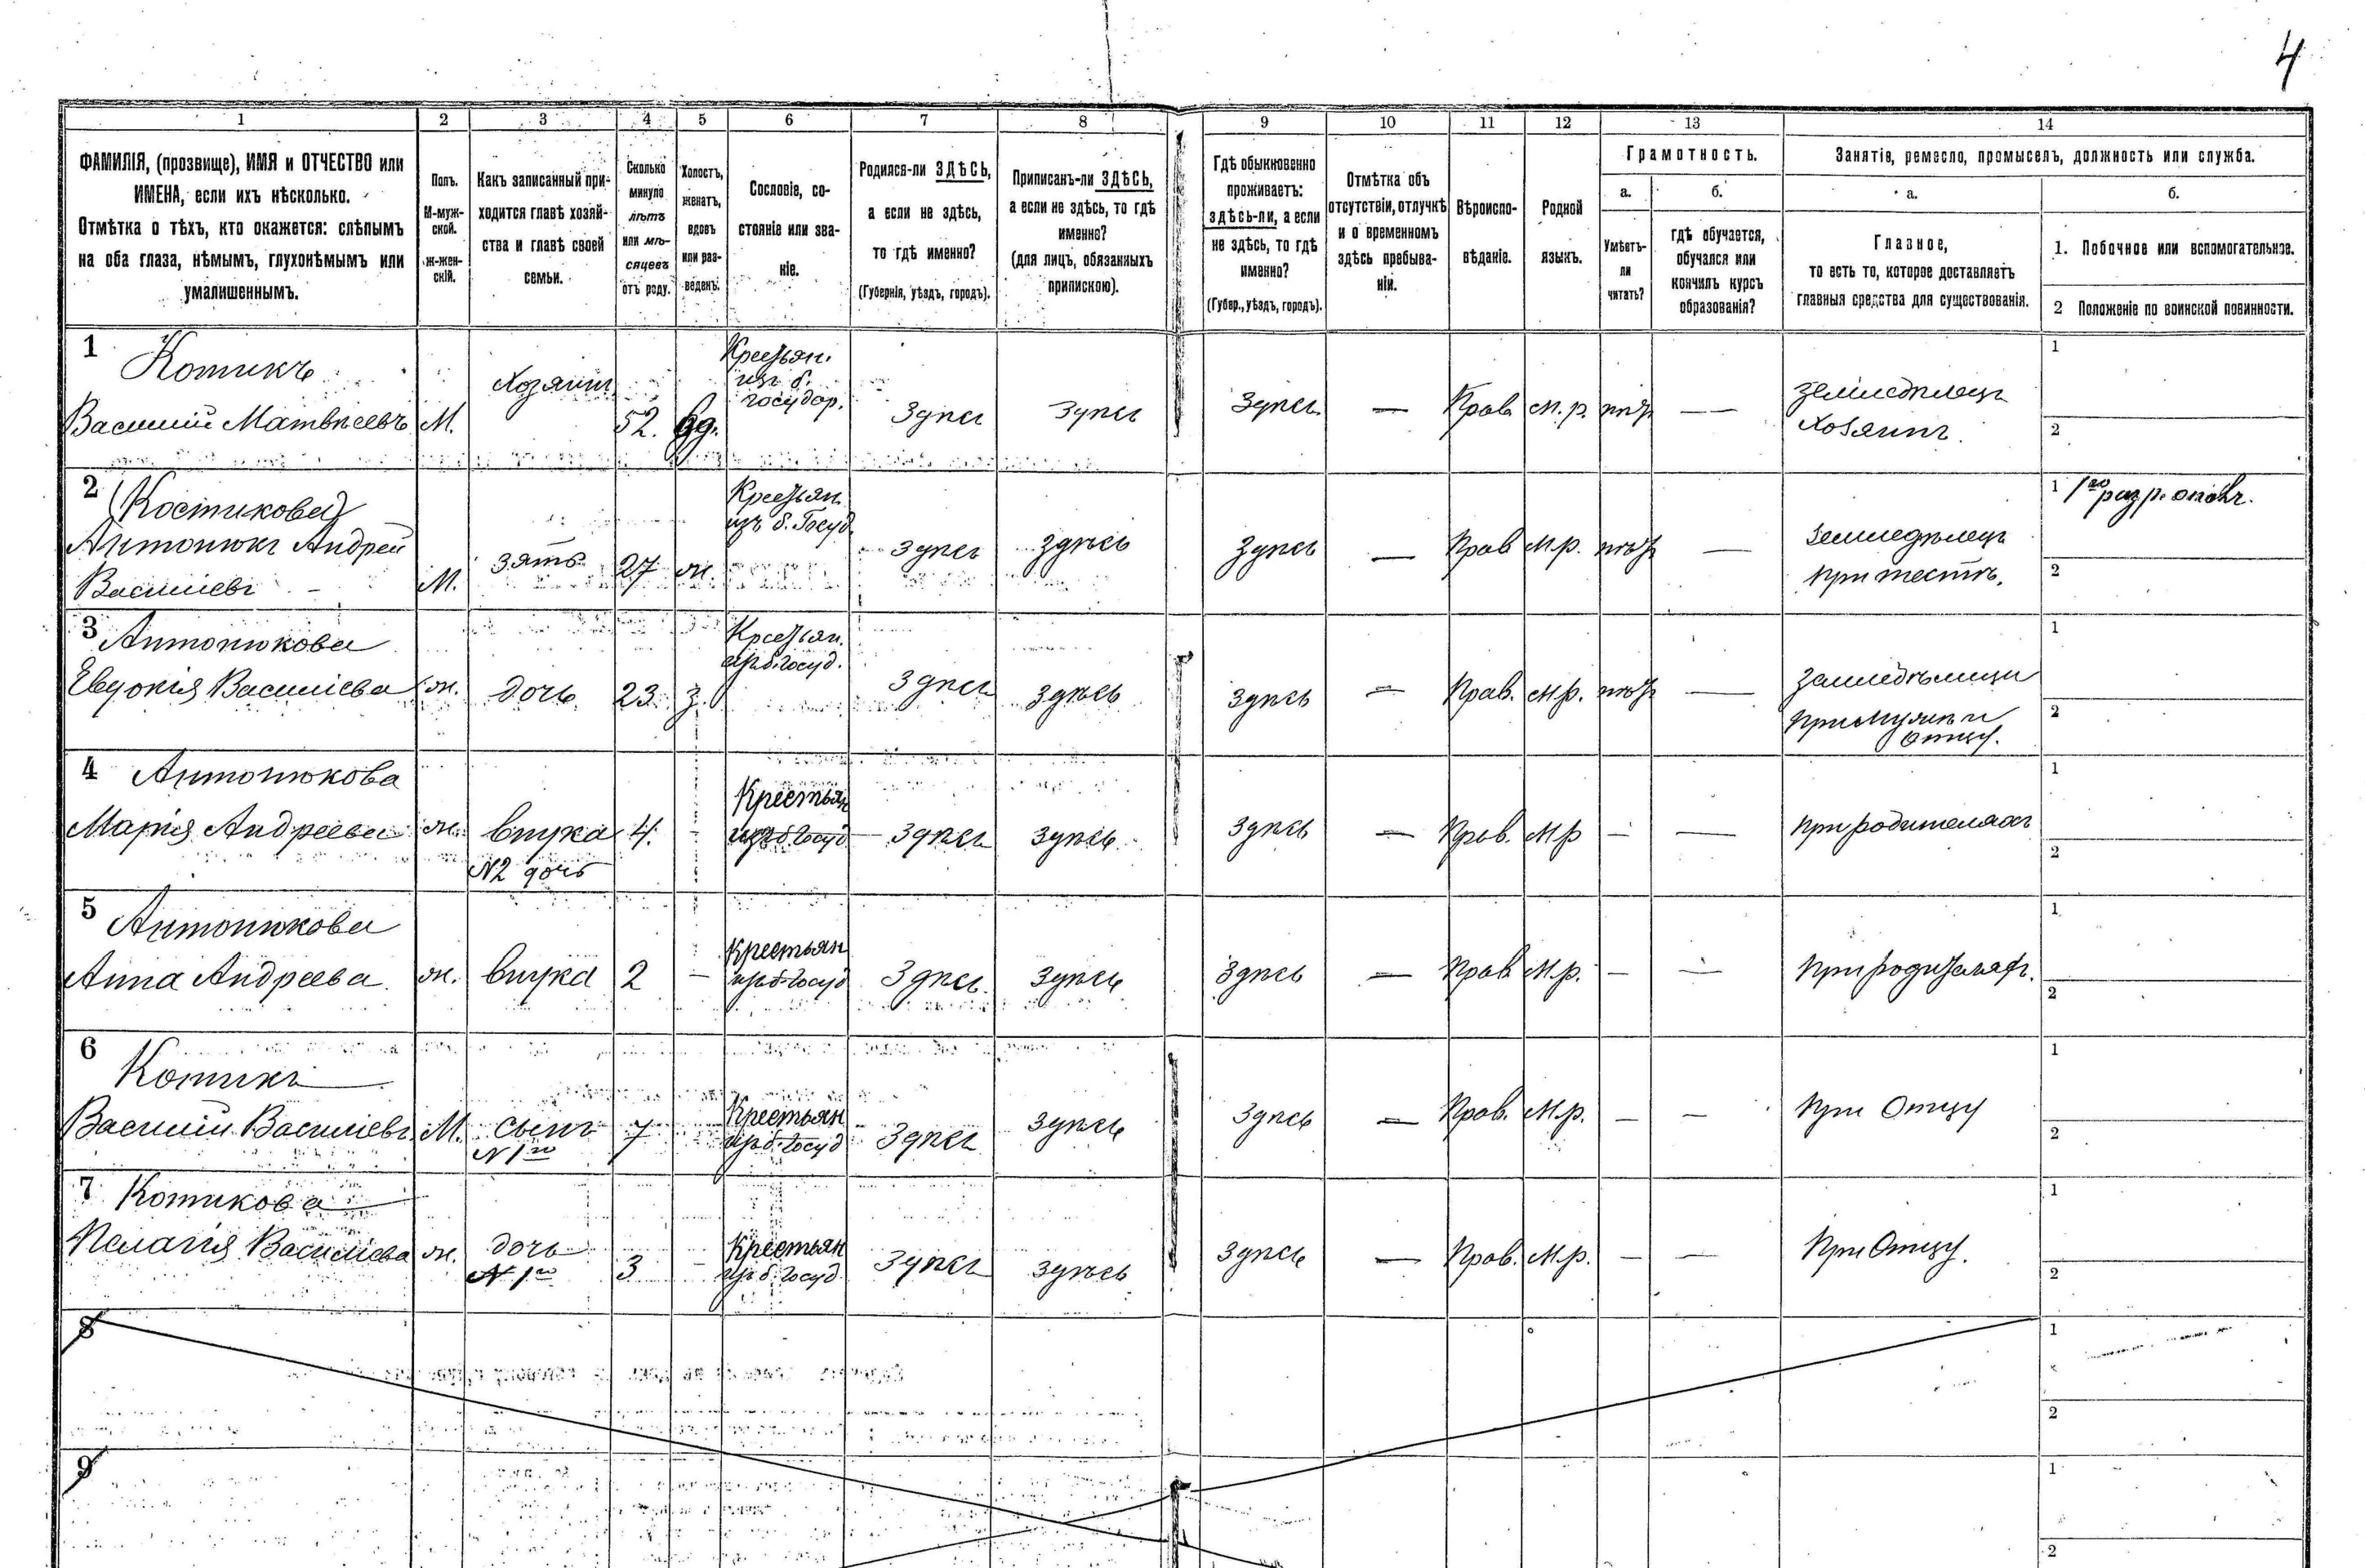 4
1 2 3 4 5 6 7 8 9 10 11 12 13 14
ФАМИЛІЯ, (прозвище), ИМЯ и ОТЧЕСТВО или
ИМЕНА, если ихъ нѣсколько.
Отмѣтка о тѣхъ, кто окажется: слѣпымъ
на оба глаза, нѣмымъ, глухонѣмымъ или
умалишеннымъ.
Полъ.
М-муж-
ской.
ж-жен-
скій.
Какъ записанный при-
ходится главѣ хозяй-
ства и главѣ своей
семьи.
Сколько
минуло
лѣтъ
или мѣ-
сяцевъ
отъ роду.
Холостъ,
женатъ,
вдовъ
или раз-
веденъ.
Сословіе, со-
стояніе или зва-
ніе.
Родился-ли ЗДѢСЬ,
а если не здѣсь,
то гдѣ именно?
(Губернія, уѣздъ, городъ).
Приписанъ-ли ЗДѢСЬ,
а если не здѣсь, то гдѣ
именно?
(для лицъ, обязанныхъ
припискою).
Гдѣ обыкновенно
проживаетъ:
здѣсь-ли, а если
не здѣсь, то гдѣ
именно?
(Губер., уѣздъ, городъ).
Отмѣтка объ
отсутствіи, отлучкѣ
и о временномъ
здѣсь пребыва-
ніи.
Вѣроиспо-
вѣданіе.
Родной
языкъ.
Грамотность.
а.
Умѣетъ-
ли
читать?
б.
гдѣ обучается,
обучался или
кончилъ курсъ
образованія?
Занятіе, ремесло, промыселъ, должность или служба.
а.
Главное,
то есть то, которое доставляетъ
главныя средства для существованія.
б.
1. Побочное или вспомогательное.
2 Положеніе по воинской повинности.
1
Котикъ
Василій Матвѣевъ
М.
Хозяинъ
52.
вд.
Крестьян.
изъ б.
государ.
Здѣсь
Здѣсь
Здѣсь
—
Прав
м.р.
нѣт
—
земледѣлецъ
Хозяинъ
1
2
2
(Костикова)
Антонюкъ Андрей
Василіевъ
М.
зять
27
ж.
Крестьян.
изъ б. Госуд.
здѣсь
здѣсь
здѣсь
—
Прав
м.р.
нѣт
—
земледѣлецъ
при тестѣ.
1 1го разр. ополч.
2
3
Антонюкова
Евдокія Василіева
ж.
дочь
23
з.
Крестьян.
изъ б. госуд.
Здѣсь
здѣсь
здѣсь
—
Прав.
м.р.
нѣт
—
земледѣлица
при мужѣ и
отцу.
1
2
4
Антонюкова
Марія Андреева
ж.
внука
N2 дочь
4.
-
Крестьян
изъ б. Госуд
здѣсь
здѣсь
здѣсь
—
Прав.
м.р
—
—
при родителяхъ
1
2
5
Антонюкова
Анна Андреева
ж.
внука
2
—
Крестьян
изъ б. Госуд
Здѣсь
здѣсь
здѣсь
—
Прав
м.р.
—
—
при родителяхъ.
1
2
6
Котикъ
Василій Василіевъ
М.
сынъ
N 1го
7
Крестьян
изъ б. Госуд
Здѣсь
здѣсь
здѣсь
—
Прав.
м.р.
—
—
при Отцу
1
2
7
Котикова
Пелагія Василіева
ж.
дочь
N 1го
3
—
Крестьян
изъ б. Госуд
здѣсь
здѣсь
здѣсь
—
Прав.
м.р.
—
—
При Отцу.
1
2
8
1
2
9
1
2